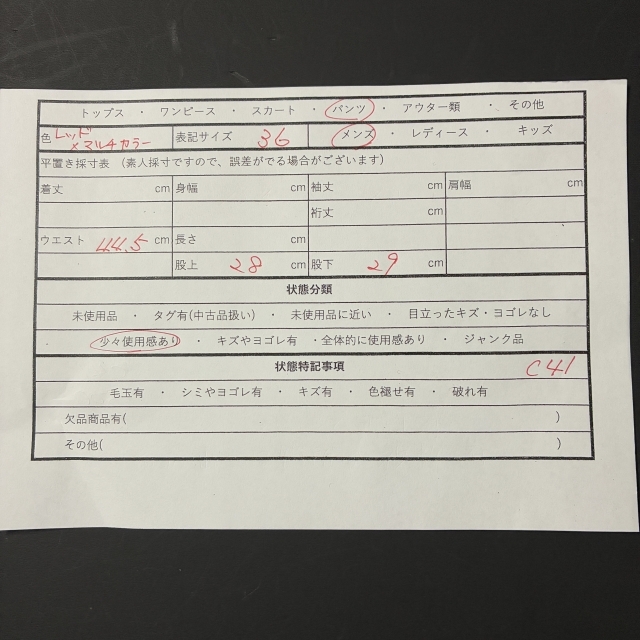 トップス ・ ワンピース ・ スカート ・ パンツ ・ アウター類 ・ その他
色 レッド×マルチカラー 表記サイズ 36 メンズ ・ レディース ・ キッズ
平置き採寸表 (素人採寸ですので、誤差がでる場合がございます)
着丈 cm 身幅 cm 袖丈 cm 肩幅 cm
裄丈 cm
ウエスト 44.5 cm 長さ cm
股上 28 cm 股下 29 cm
状態分類
未使用品 ・ タグ有(中古品扱い) ・ 未使用品に近い ・ 目立ったキズ・ヨゴレなし
少々使用感あり ・ キズやヨゴレ有 ・全体的に使用感あり ・ ジャンク品
状態特記事項 C41
毛玉有 ・ シミやヨゴレ有 ・ キズ有 ・ 色褪せ有 ・ 破れ有
欠品商品有( )
その他( )